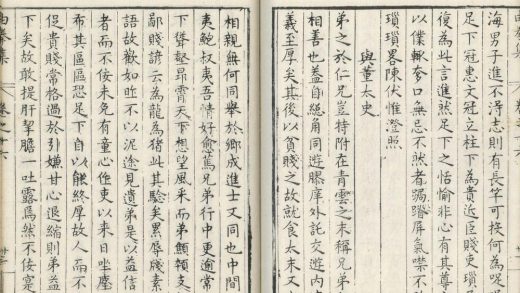 海男子進不淂志則有長竿可投何為
足下冠惠文冠立柱下為貴近臣賤吏瑣
復為此言進然足下之恬愉非心有其尊
以僕輒奓口無忌不然者蹐屏氣噤不
瑣瑣畧陳伏惟澄照
與董太史
弟之於仁兄豈特附在青雲之末稱兄弟
相善也盖自總角同遊膠庠外託交遊内
義至厚矣其後以貧賤之故就食太末又
相親無何同舉於鄉成進士又同也中間
夷鮑叔夷吾情好愈篤兄弟行中更逾常
下聳壑昻霄天下想望風来而弟顛頓支
鄙賤諺云為龍為猪此其驗矣累辱牋素
語故歡如昨不以泥途見遺弟是以益信
者而不佞未免有童心吏以来日坐塵
布其區區恐足下自以能終厚故人而不
促貴賤常格過於引嫌甘心退縮則弟益
下矣故敢提肝挈膽一吐露焉然不佞寔
由拳集